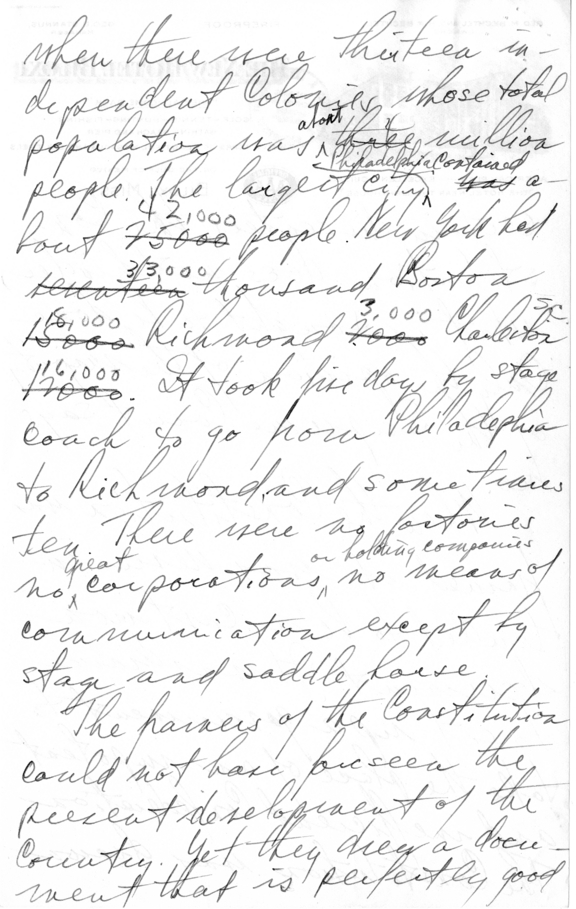 when there were thirteen in-
dependent Colonies, whose total
about
population was three million
Philadelphia contained
people. The largest city, was a-
42,000
bout 25000 people. New York had
33,000
seventeen thousand Boston
18,000 3,000 S.C.
15000 Richmond 2000 Charleston
16,000
12000. It took five days by stage
coach to go from Philadephia
to Richmond, and sometimes
ten. There were no factories
great or holding companies
no corporations, no means of
communication except by
stage and saddle horse.
The framers of the Constitution
could not have forseen the
present development of the
Country. Yet they drew a docu-
ment that is perfectly good